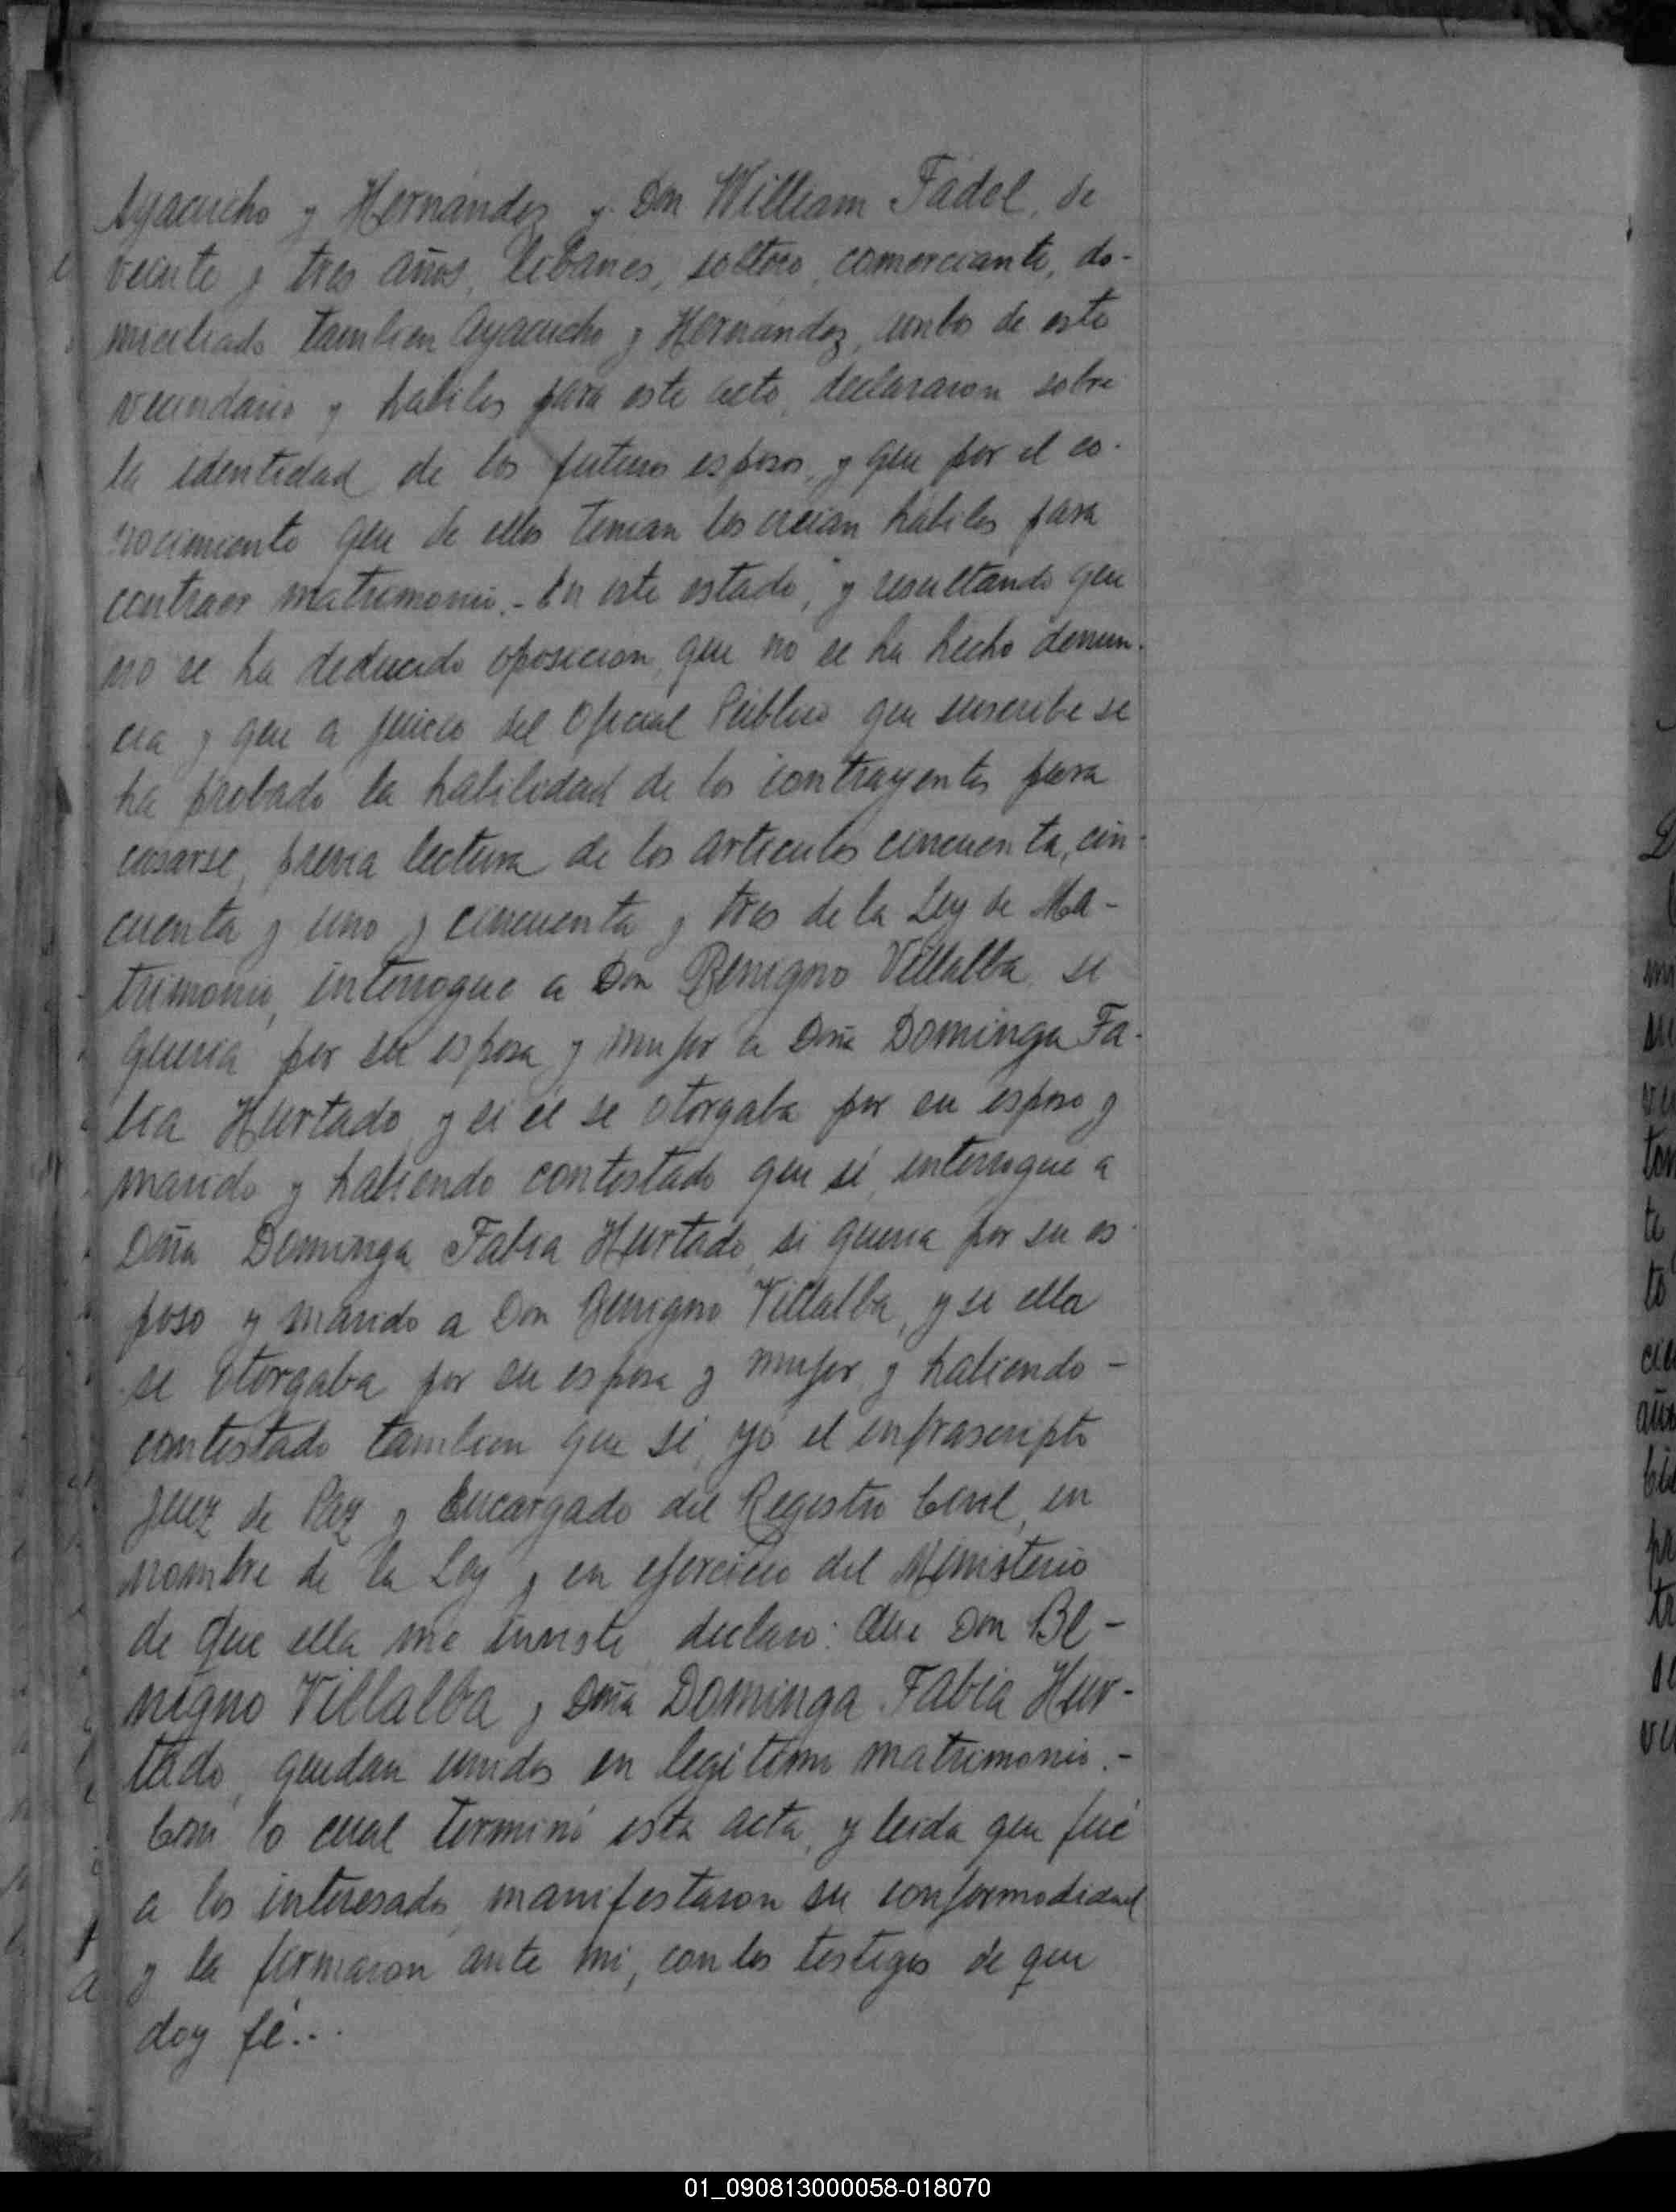 Ayacucho y Hernández y Don William Fadel, de
veinte y tres años, libanes, soltero, comerciante, do-
miciliado tambien Ayacucho y Hernández, ambos de este
vecindario y habiles para este acto, declararon sobre
la identidad de los futuros esposos, y que por el co-
nocimiento que de ellos tenian los creian habiles para
contraer matrimonio.- En este estado, y resultando que
no se ha deducido oposicion, que no se ha hecho denun-
cia y que a juicio del Oficial Público que suscribe se
ha probado la habilidad de los contrayentes para
casarse, previa lectura de los articulos cincuenta, cin-
cuenta y uno y cincuenta y tres de la Ley de Ma-
trimonio, interrogue a Don Benigno Villalba si
queria por su esposa y mujer a Doña Dominga Fa-
bia Hurtado, y si él se otorgaba por su esposo y
marido y habiendo contestado que sí, interrogue a
Doña Dominga Fabia Hurtado, si queria por su es-
poso y marido a Don Benigno Villalba, y si ella
se otorgaba por su esposa y mujer, y habiendo -
contestado tambien que sí, yo el infrascripto
Juez de Paz y Encargado del Registro Civil, en
nombre de la Ley y en ejercicio del Ministerio
de que ella me inviste, declaro: Que Don Be-
nigno Villalba y Doña Dominga Fabia Hur-
tado, quedan unidos en legitimo matrimonio.-
Con lo cual terminó esta acta, y leida que fué
a los interesados, manifestaron su conformodidad
y la firmaron ante mi, con los testigos de que
doy fé...
01_090813000058-018070